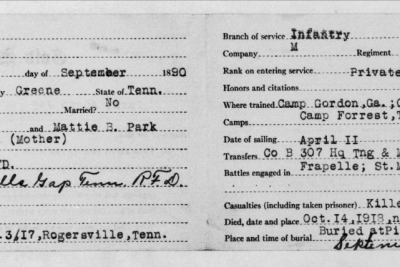 day of September 1890
y Greene State of Tenn.
No
Married?
and Mattie E. Park
(Mother)
D.
lls Gap Tenn R.F.D.
.3/17, Rogersville, Tenn.
Branch of service Infantry
Company M Regiment
Rank on entering service Private
Honors and citations
Where trained Camp Gordon, Ga.; C
Camps Camp Forrest, T
Date of sailing April II
Transfers Co B 307 Hq Tng & M
Battles engaged in Frapelle; St.M
Casualties (including taken prisoner) Kille
Died, date and place Oct.14,1918, n
Place and time of burial Buried at Pi